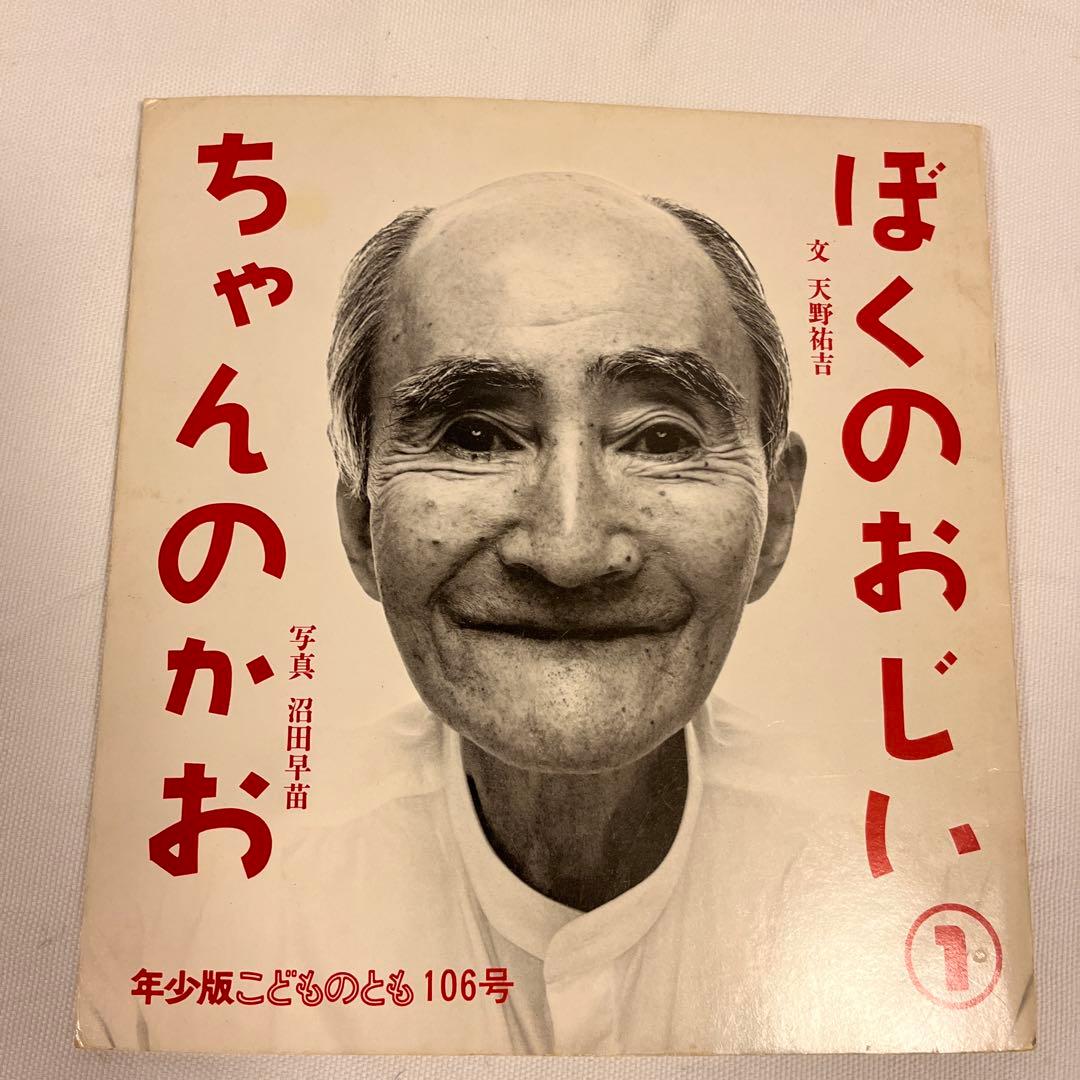 ぼくのおじい
ちゃんのかお
文 天野祐吉
写真 沼田早苗
年少版こどものとも106号
1